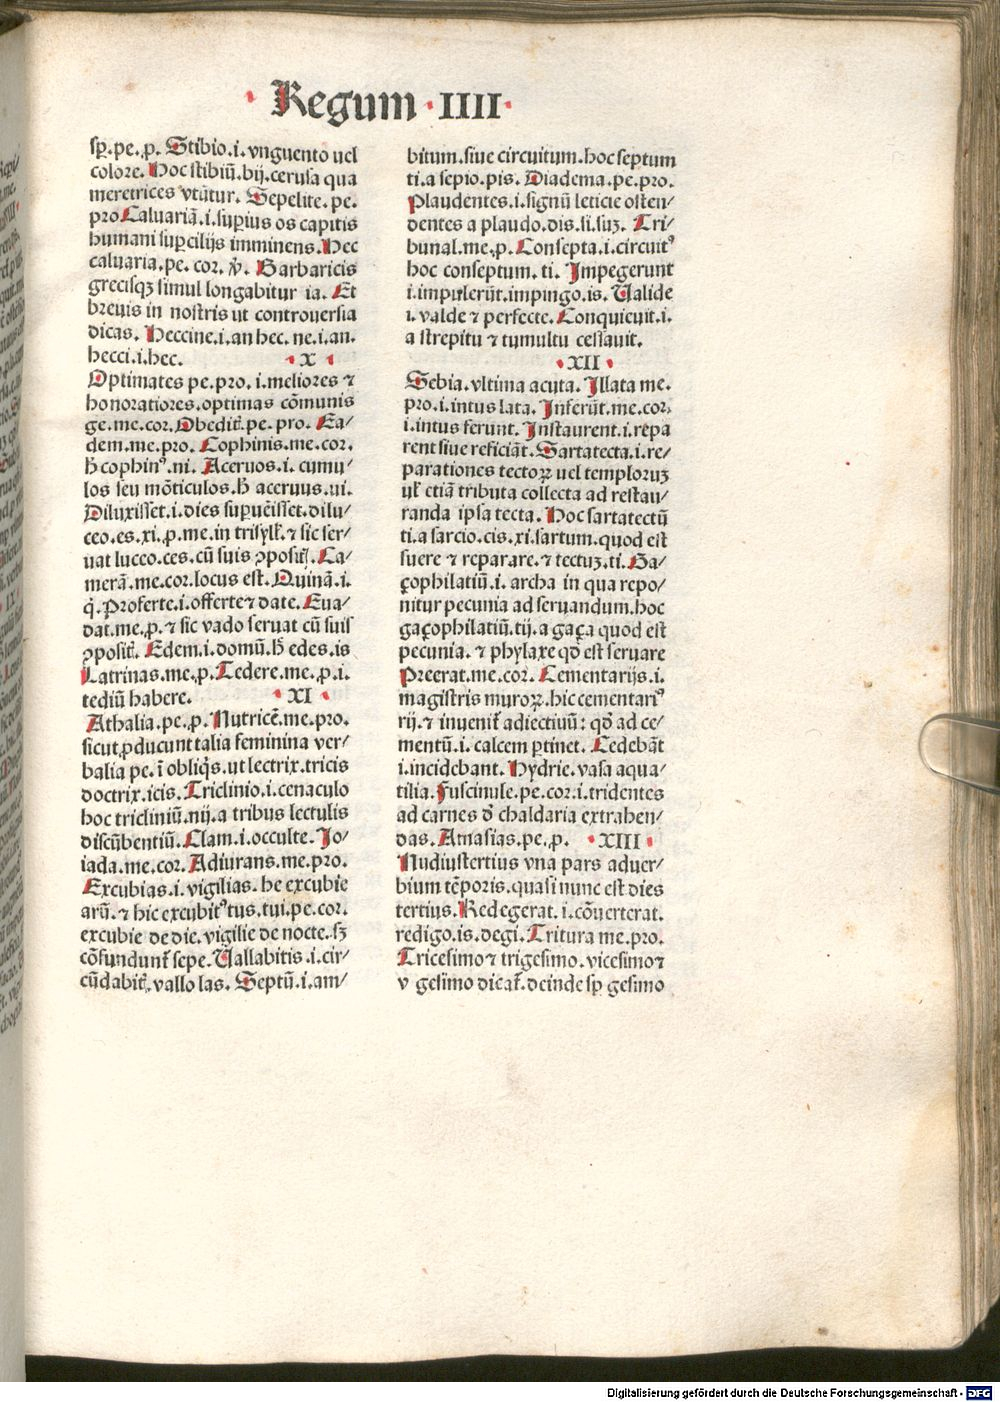 Regum · IIII ·
sp̄. pe. ꝓ. Stibio .i. vnguento vel
colore. Hoc stibiū. bij. cerusa qua
meretrices vtūtur. Sepelite. pe.
pro Caluariā .i. suꝑius os capitis
humani suꝑcilijs imminens. Hec
caluaria. pe. cor. Barbaricis
grecisqꝫ simul longabitur ia. Et
breuis in nostris ut controuersia
dicas. Heccine .i. an hec. ne .i. an.
hecci .i. hec. · X ·
Optimates pe. pro. i. meliores ⁊
honoratiores. optimas cōmunis
ge. me. cor. Obedit̄. pe. pro. Ea/
dem. me. pro. Cophinis. me. cor.
h̄ cophinꝰ. ni. Aceruos .i. cumu/
los seu mōticulos. h̄ aceruus. ui.
Diluxisset .i. dies suꝑuēisset. dilu/
ceo. es. xi. ꝓ. me. in trisyll̄. ⁊ sic ser/
uat luceo. ces. cū suis ꝯposit̄. Ca/
merā. me. cor. locus est. Quinā .i.
q̇. Proferte .i. offerte ⁊ date. Eua/
dat. me. ꝓ. ⁊ sic vado seruat cū suis
ꝯposit̄. Edem .i. domū. h̄ edes. is
Latrinas. me. ꝓ. Tedere. me. ꝓ. i.
tediū habere. · XI ·
Athalia. pe. ꝓ. Nutricē. me. pro.
sicut ꝓducunt talia feminina ver/
balia pe. ī obliq̇s. ut lectrix. tricis
doctrix. icis. Triclinio .i. cenaculo
hoc tricliniū. nij. a tribus lectulis
discūbentiū. Clam .i. occulte. Jo/
iada. me. cor. Adiurans. me. pro.
Excubias .i. vigilias. he excubie
arū. ⁊ hic excubitꝰ tus. tui. pe. cor.
excubie de die. vigilie de nocte. sꝫ
cōfundunt̄ sepe. Uallabitis .i. cir/
cūdabit̄. vallo las. Septū .i. am/
bitum. siue circuitum. hoc septum
ti. a sepio. pis. Diadema. pe. pro.
Plaudentes .i. signū leticie osten/
dentes a plaudo. dis. si. suꝫ. Tri/
bunal. me. ꝓ. Consepta .i. circuitꝰ
hoc conseptum. ti. Impegerunt
i. impulerūt. impingo. is. Ualide
i. valde ⁊ perfecte. Conquieuit .i.
a strepitu ⁊ tumultu cessauit.
· XII ·
Sebia. vltima acuta. Illata me.
pro. i. intus lata. Inferūt. me. cor.
i. intus ferunt. Instaurent .i. repa
rent siue reficiāt. Sartatecta .i. re/
parationes tectoꝝ vel temploruꝫ
vl̄ etiā tributa collecta ad restau/
randa ipsa tecta. Hoc sartatectū
ti. a sarcio. cis. xi. sartum. quod est
suere ⁊ reparare. ⁊ tectuꝫ. ti. Ga/
çophilatiū .i. archa in qua repo/
nitur pecunia ad seruandum. hoc
gaçophilatiū. tij. a gaça quod est
pecunia. ⁊ phylaxe qd̄ est seruare
Preerat. me. cor. Cementarijs .i.
magistris muroꝝ. hic cementariꝰ
rij. ⁊ inuenit̄ adiectiuū: qd̄ ad ce/
mentū .i. calcem ꝑtinet. Cedebāt
i. incidebant. Hydrie. vasa aqua/
tilia. Fuscinule. pe. cor. i. tridentes
ad carnes d̄ chaldaria extrahen/
das. Amasias. pe. ꝓ. · XIII ·
Nudiustertius vna pars aduer/
bium tēporis. quasi nunc est dies
tertius. Redegerat .i. cōuerterat.
redigo. is. degi. Tritura me. pro.
Tricesimo ⁊ trigesimo. vicesimo ⁊
v gesimo dicat̄. deinde sp̄ gesimo
Digitalisierung gefördert durch die Deutsche Forschungsgemeinschaft - DFG